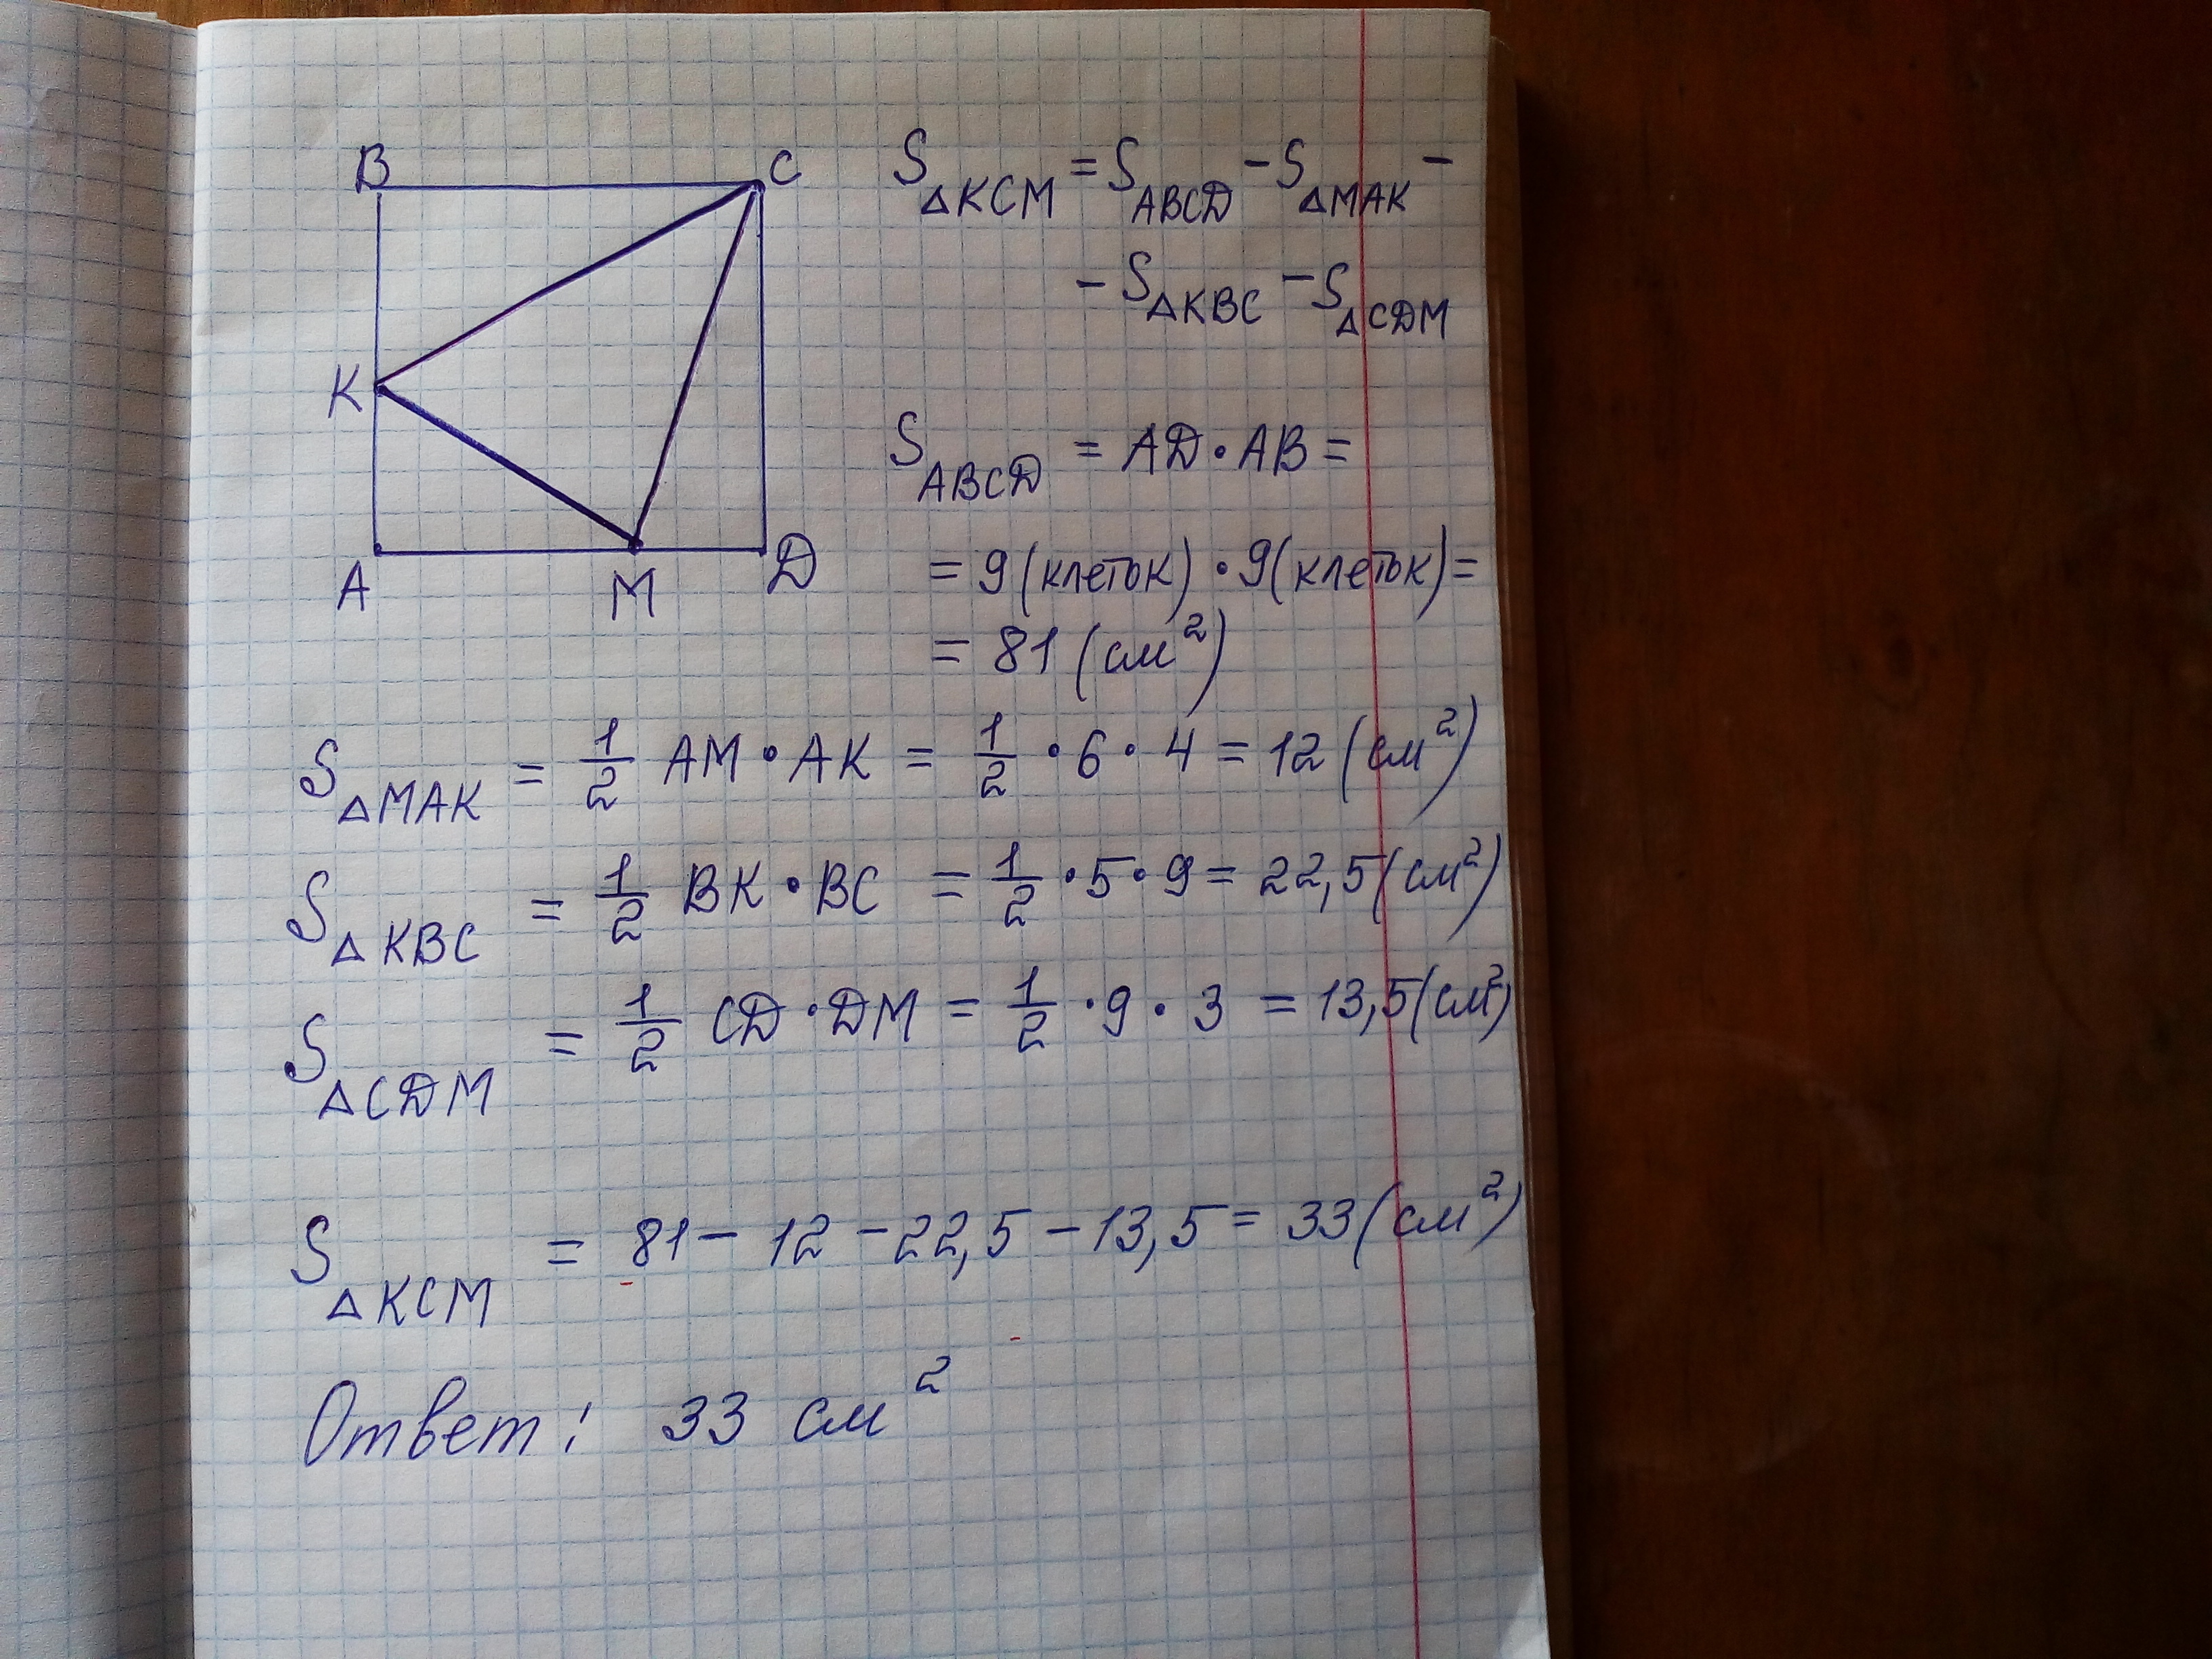 B C
K
A M D
S△KCM = S ABCD − S△MAK −
− S△KBC − S△CDM
S ABCD = AD • AB =
= 9 (клеток) • 9 (клеток) =
= 81 (см²)
S△MAK = 1/2 AM • AK = 1/2 • 6 • 4 = 12 (см²)
S△KBC = 1/2 BK • BC = 1/2 • 5 • 9 = 22,5 (см²)
S△CDM = 1/2 CD • DM = 1/2 • 9 • 3 = 13,5 (см²)
S△KCM = 81 − 12 − 22,5 − 13,5 = 33 (см²)
Ответ: 33 см²